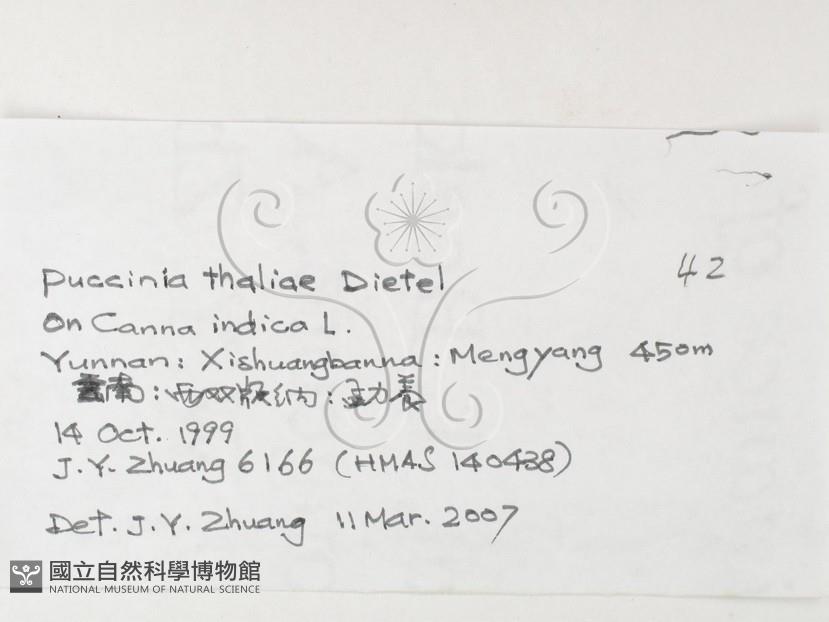 42
Puccinia thaliae Dietel
On Canna indica L.
Yunnan: Xishuangbanna: Mengyang 450m
雲南:西双版纳:勐养
14 Oct. 1999
J.Y. Zhuang 6166 (HMAS 140438)
Det. J.Y. Zhuang 11 Mar. 2007
國立自然科學博物館
NATIONAL MUSEUM OF NATURAL SCIENCE